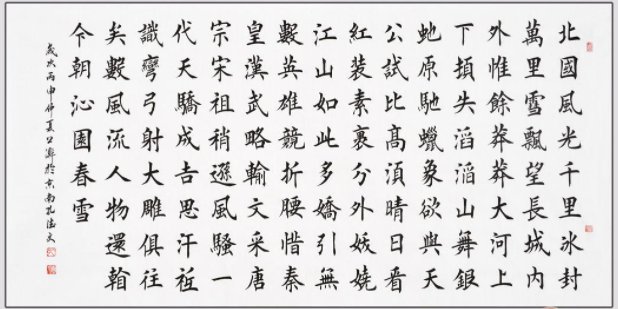 北國風光千里冰封
萬里雪飄望長城內
外惟餘莽莽大河上
下頓失滔滔山舞銀
虵原馳蠟象欲與天
公試比高須晴日看
紅裝素裹分外妖嬈
江山如此多嬌引無
數英雄競折腰惜秦
皇漢武略輸文采唐
宗宋祖稍遜風騷一
代天驕成吉思汗祗
識彎弓射大雕俱往
矣數風流人物還
今朝沁園春雪
歲次丙申仲夏於京南孔德文